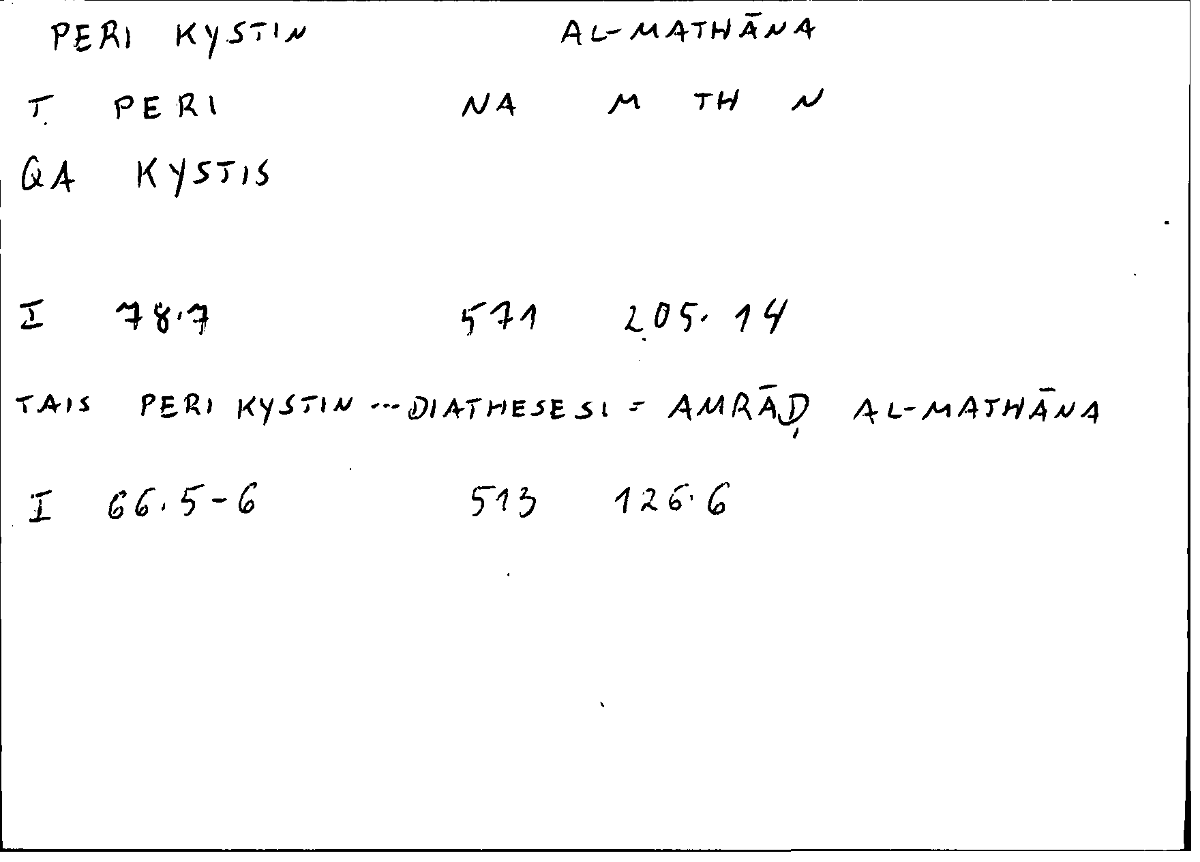 PERI KYSTIN AL-MATHĀNA
Ṭ PERI NA M TH N
QA KYSTIS
I 78.7 571 205.14
TAIS PERI KYSTIN ... DIATHESESI = AMRĀḌ AL-MATHĀNA
I 66.5-6 513 126.6